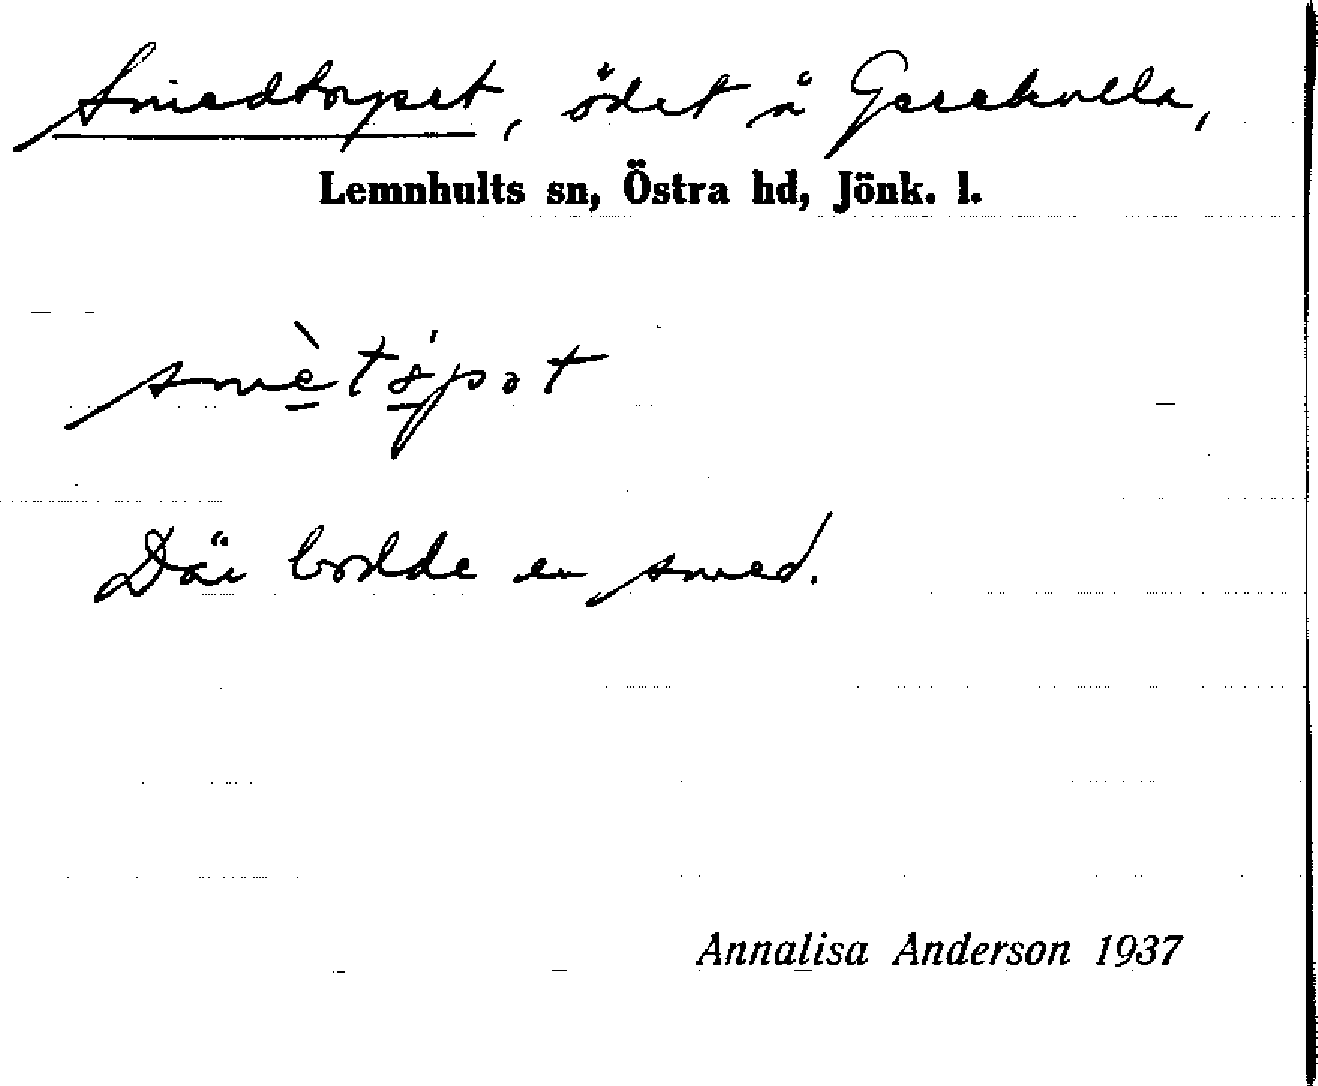 Smedtorpet, ödet å Geeekulla,
Lemnhults sn, Östra hd, Jönk. l.
Där bodde en smed.
Annalisa Anderson 1937